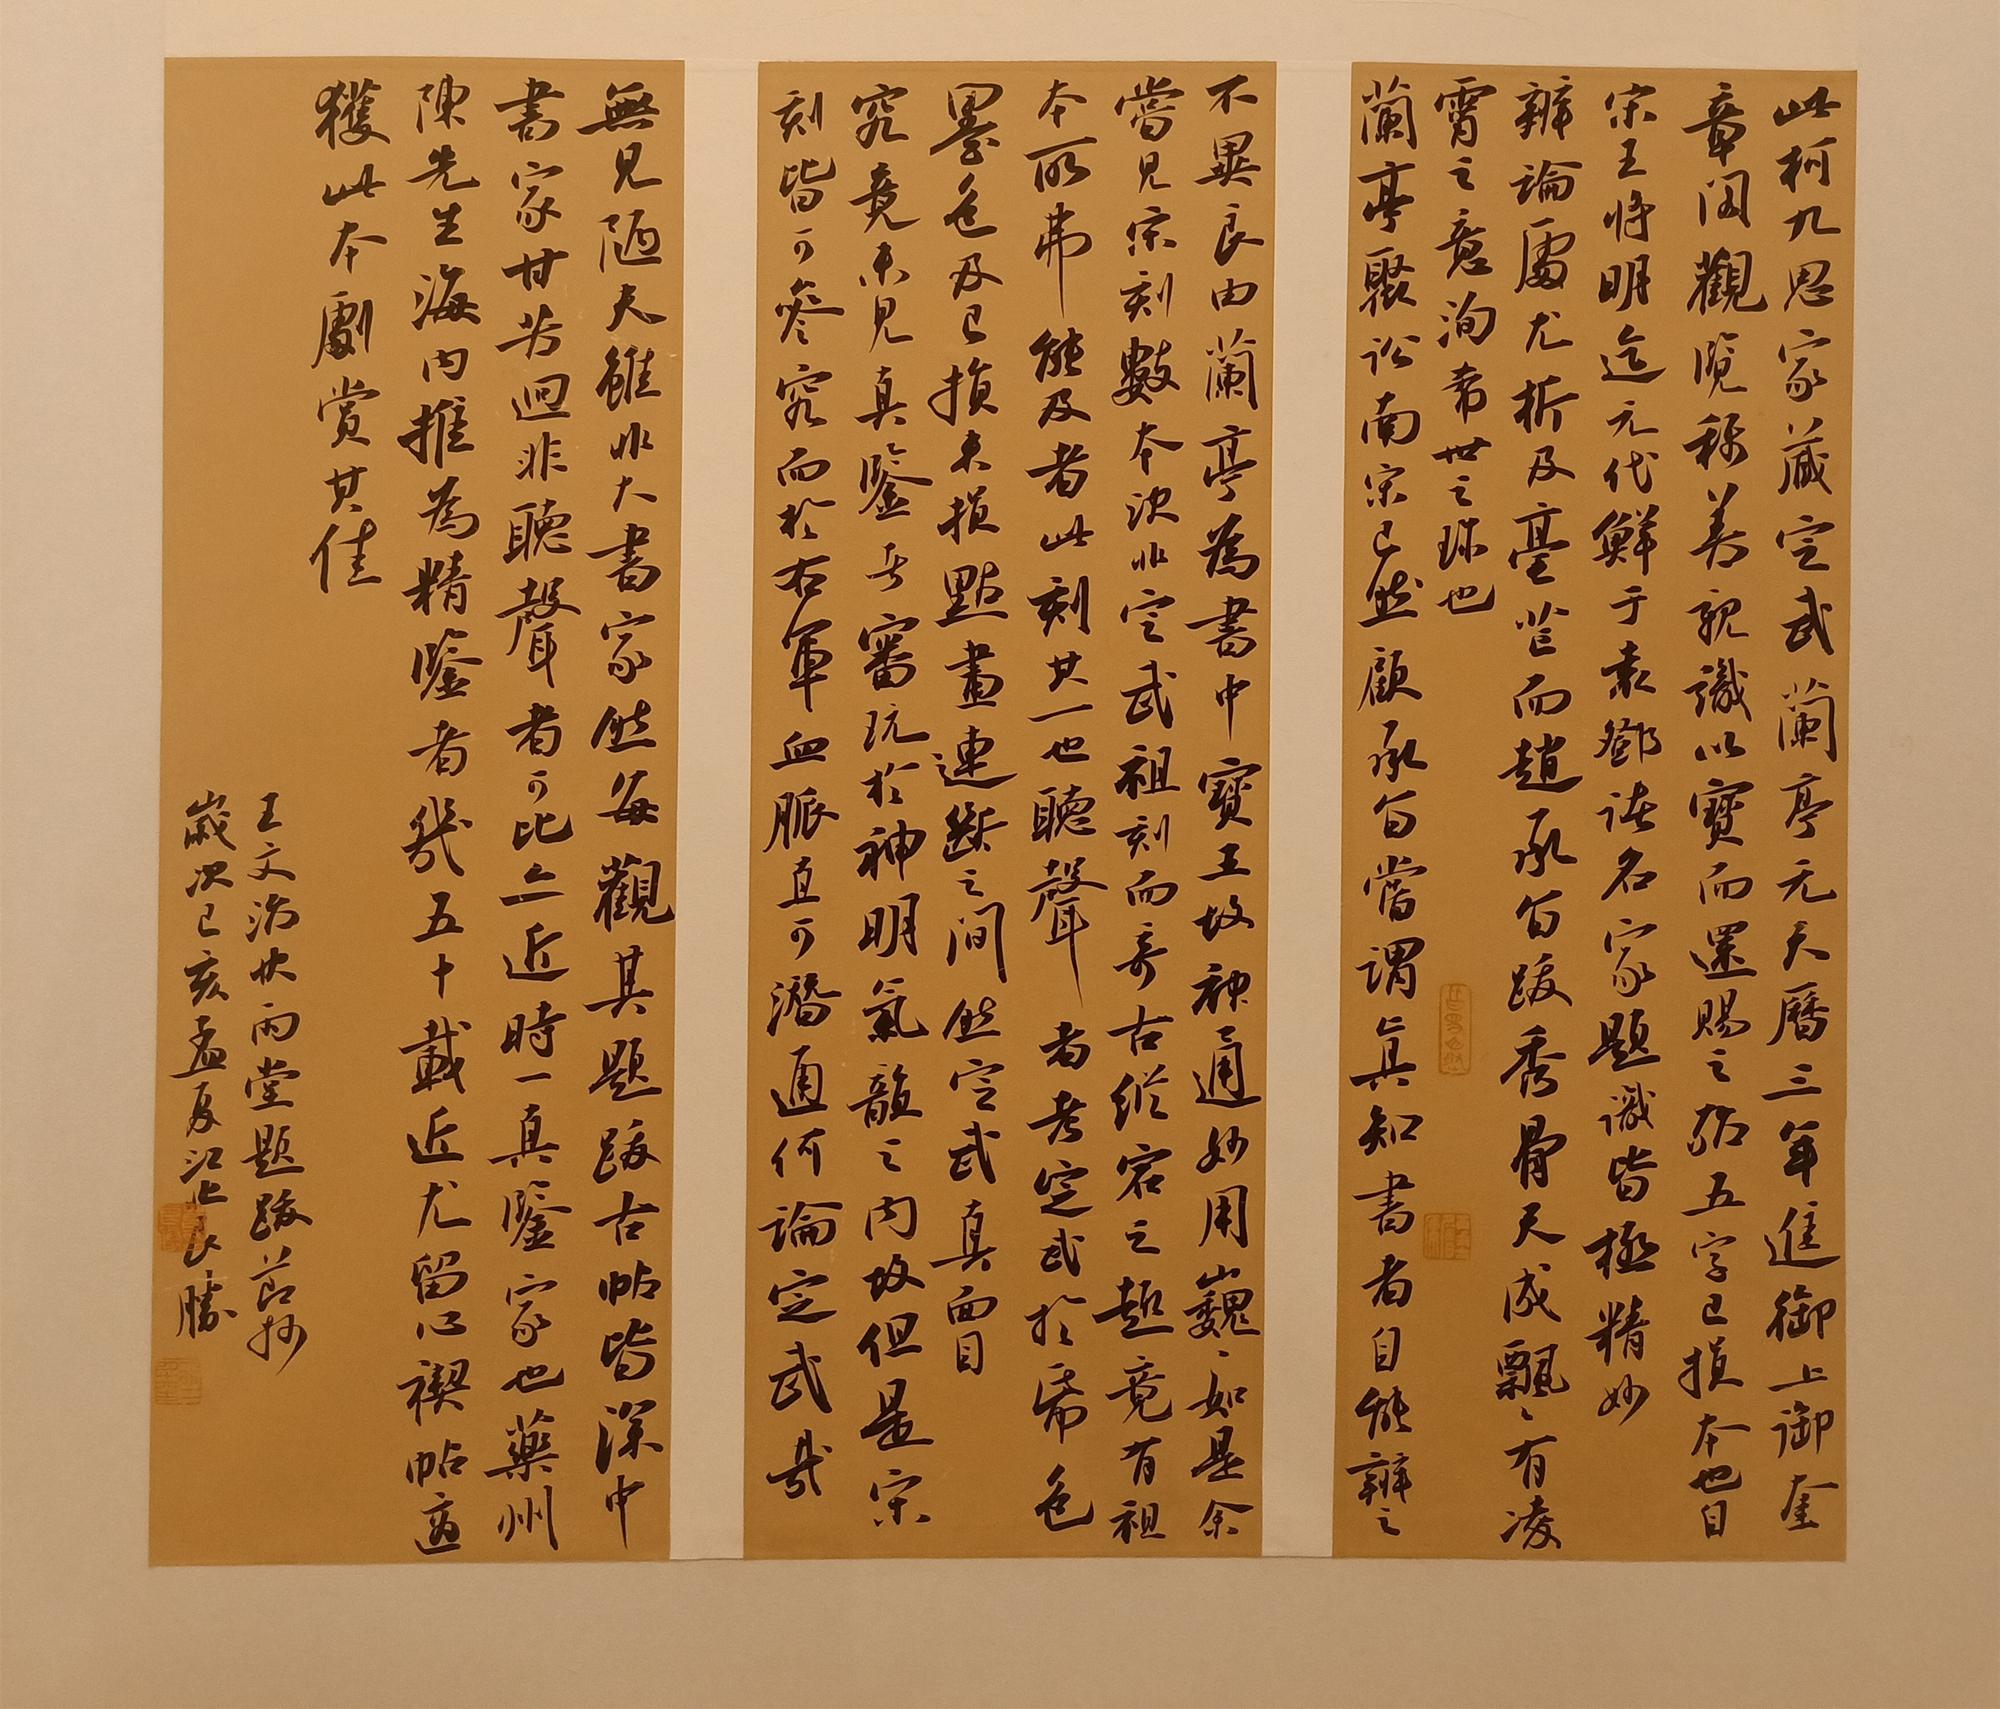 此柯九思家藏定武蘭亭元天曆三年進御上御奎
章閣觀覽稱善親識以寶而還賜之拓五字已損本也自
宋王將明迄元代鮮于袁鄧諸名家題識皆極精妙
辨論處尤析及毫芒而趙承旨跋秀骨天成飄飄有凌
霄之意洵希世之珎也
蘭亭聚訟南宋已然顧承旨嘗謂真知書者自能辨之
不異良由蘭亭為書中寶王故神通妙用巍巍如是余
嘗見宋刻數本決非定武祖刻而奇古縱宕之趣竟有祖
本所弗能及者此刻其一也聽聲者考定武於氊色
墨色及已損未損點畫連斷之間然定武真面目
究竟未見真鑒者審玩於神明氣韻之內故但是宋
刻皆可參究而於右軍血脈直可潛通何論定武哉
無見陋夫雖非大書家然每觀其題跋古帖皆深中
書家甘苦迥非聽聲者可比亦近時一真鑒家也藥州
陳先生海內推為精鑒者幾五十載近尤留心禊帖適
獲此本劇賞其佳
王文治快雨堂題跋節抄
歲次己亥孟夏江勝